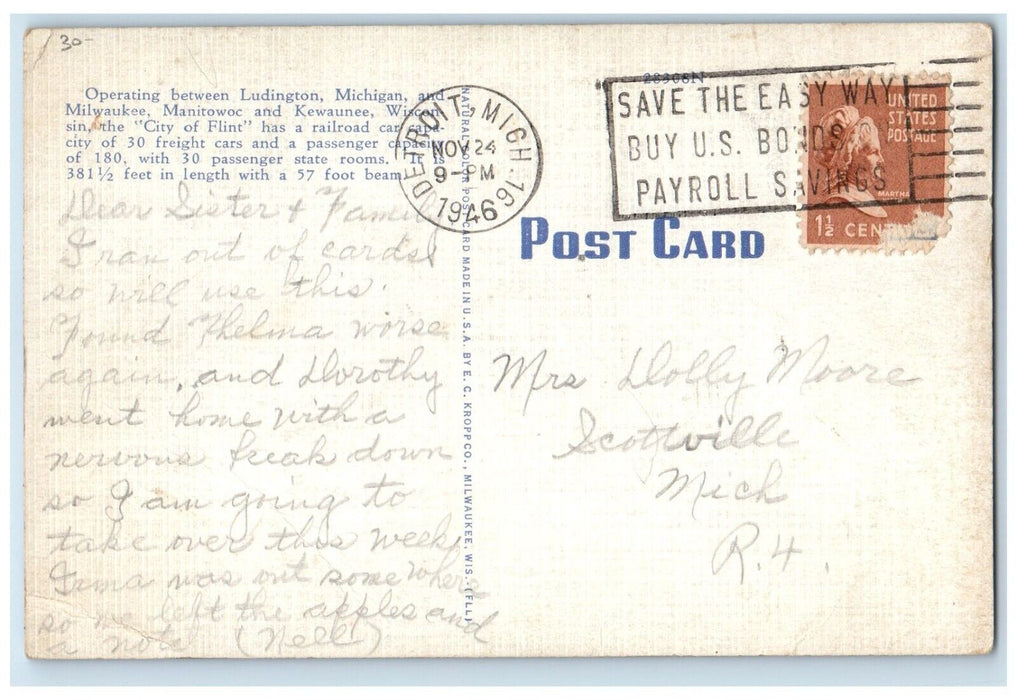 30-
Operating between Ludington, Michigan, and
Milwaukee, Manitowoc and Kewaunee, Wiscon-
sin, the "City of Flint" has a railroad car capa-
city of 30 freight cars and a passenger capacity
of 180, with 30 passenger state rooms. It is
381½ feet in length with a 57 foot beam.
Dear Sister & Family
I ran out of cards
so will use this.
Found Thelma worse
again, and Dorothy
went home with a
nervous break down
so I am going to
take over this week
Irma was out some where
so we left the apples and
a note (Nell)
NATURAL COLOR POST CARD MADE IN U.S.A. BY E. C. KROPP CO., MILWAUKEE, WIS. (FLL)
DETROIT, MICH. 16
NOV 24
9-PM
1946
28308N
SAVE THE EASY WAY
BUY U.S. BONDS
PAYROLL SAVINGS
UNITED
STATES
POSTAGE
MARTHA
1½ CENTS
POST CARD
Mrs Dolly Moore
Scottville
Mich
R.4.